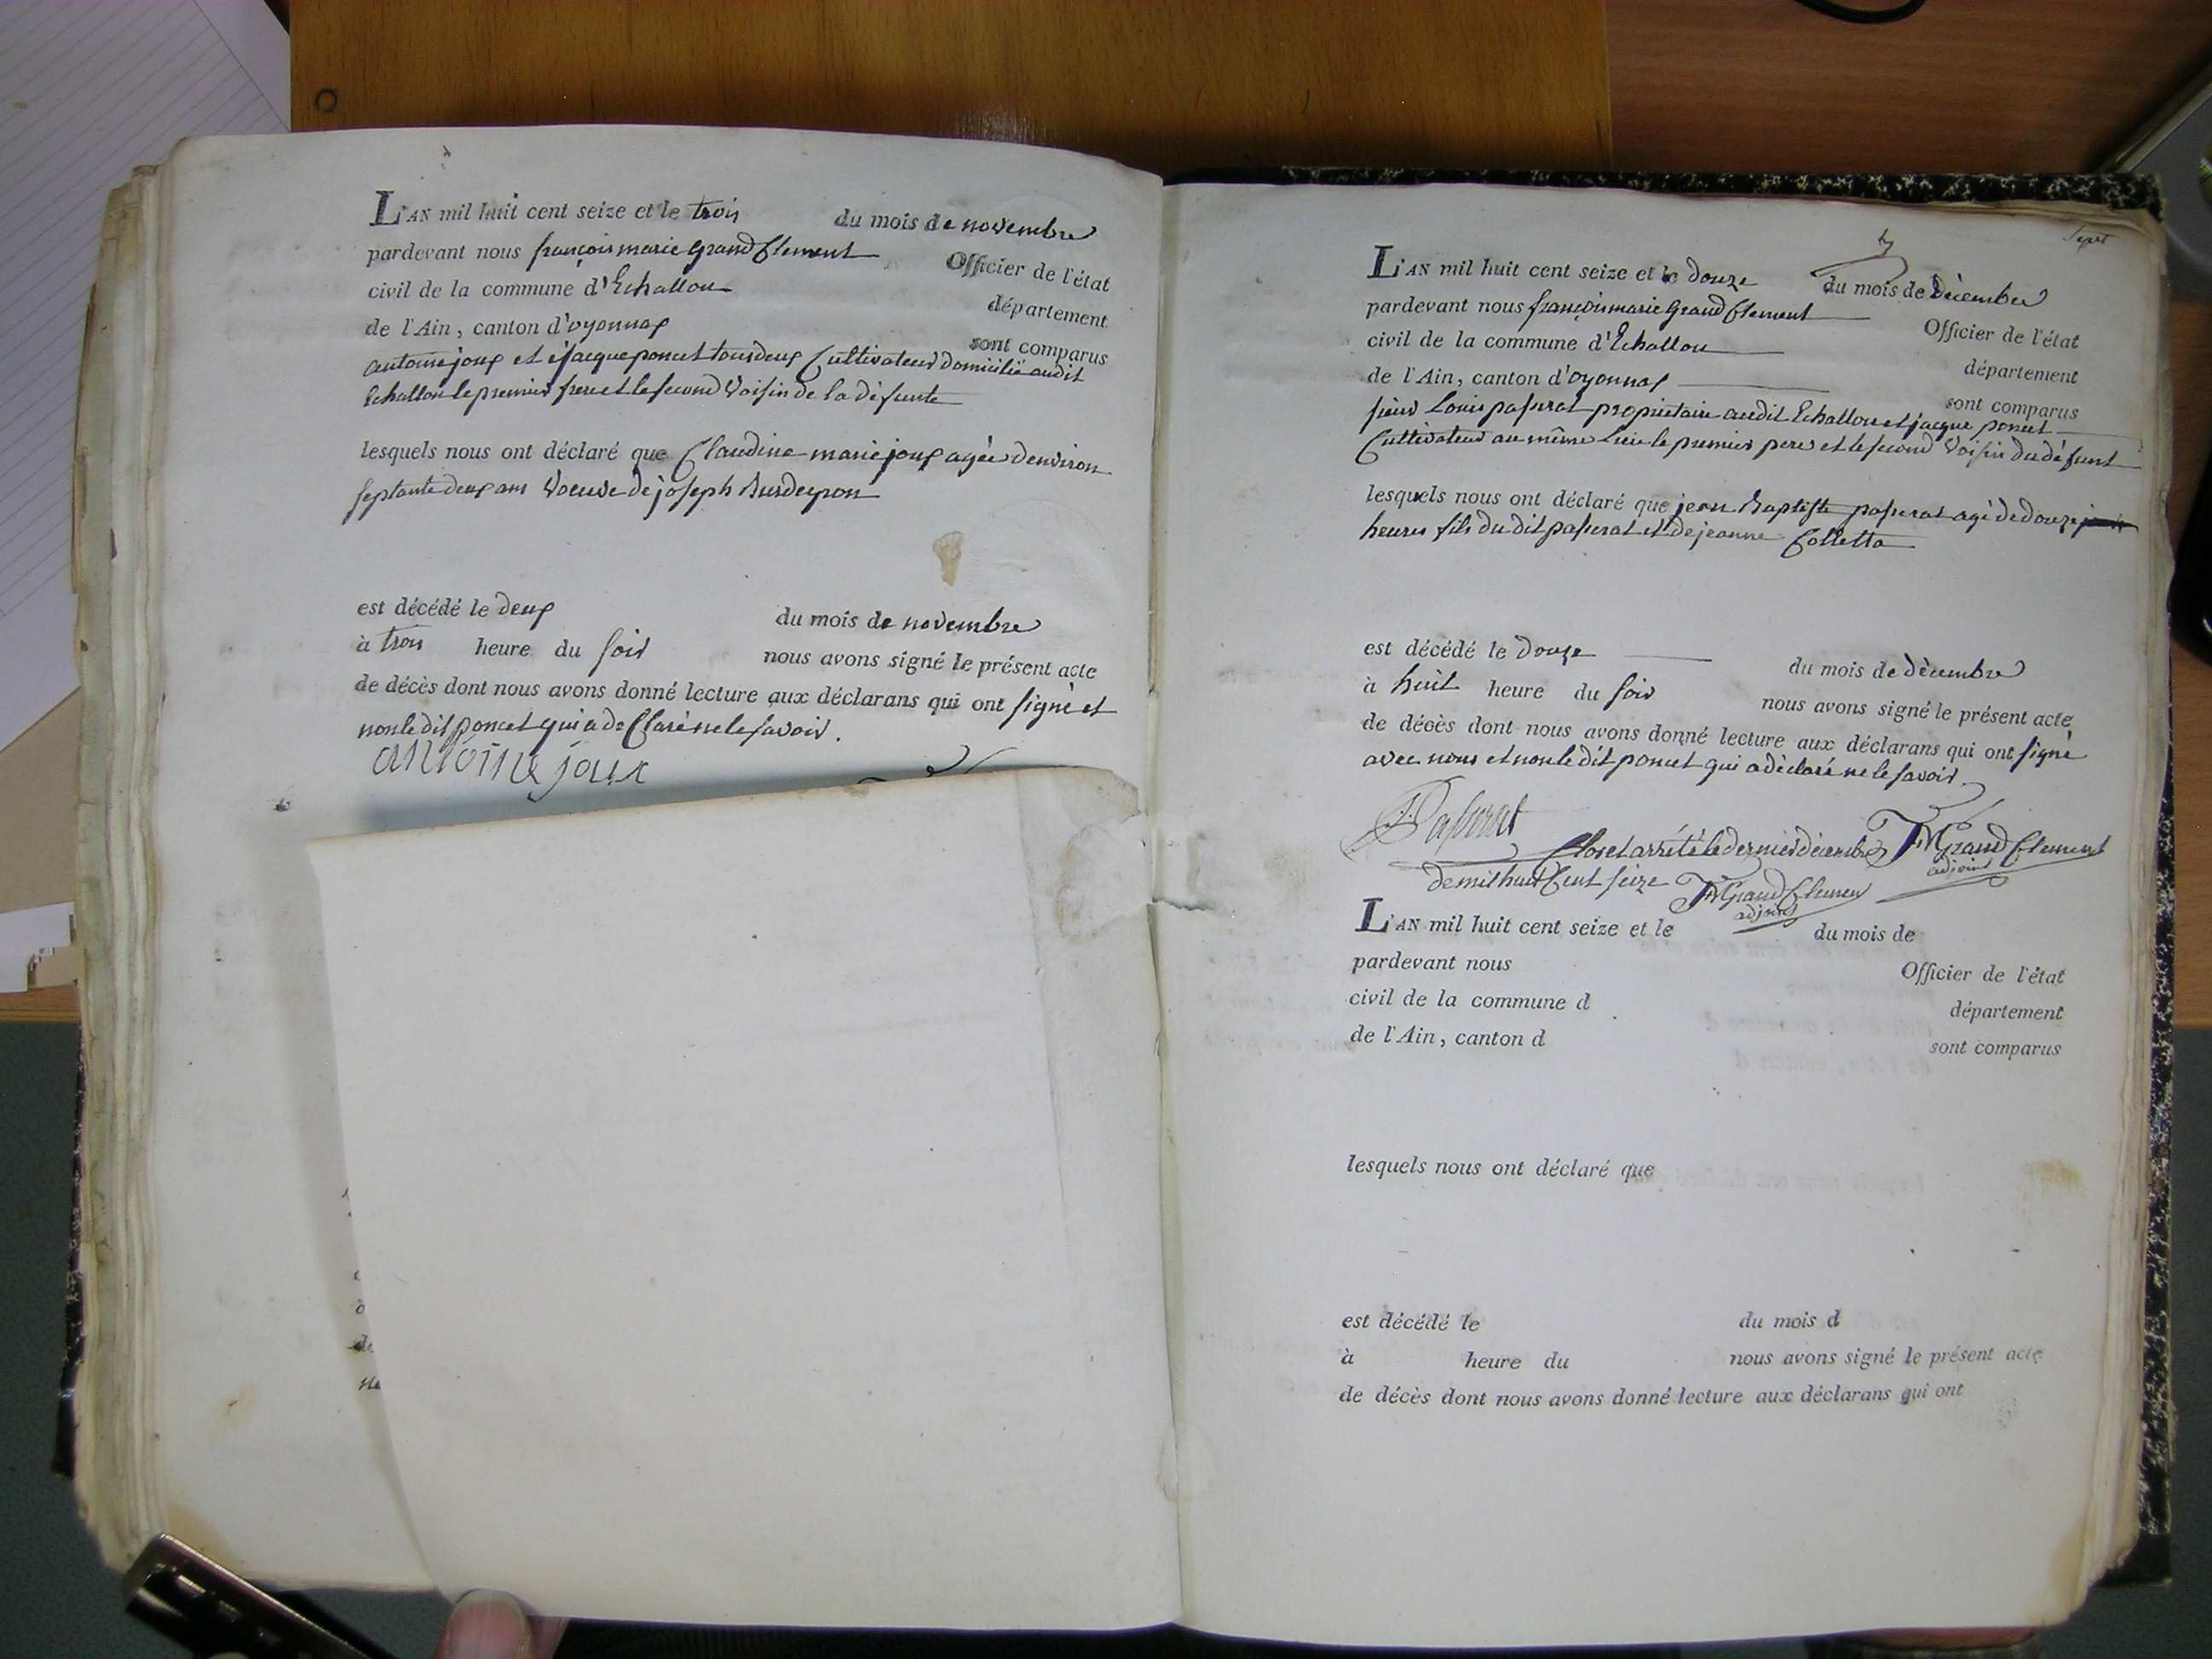 L'AN mil huit cent seize et le trois du mois de novembre
pardevant nous françois marie grand Clement Officier de l'état
civil de la commune d'Echallon département
de l'Ain, canton d'oyonnax sont comparus
antoine joux et jacque poncet tous deux Cultivateurs domicilié audit
Echallon le premier frere et le second Voisin de la défunte
lesquels nous ont déclaré que Claudine marie joux agée d'environ
septante deux ans Voeuve de joseph
est décédé le deux du mois de novembre
à trois heure du soir nous avons signé le présent acte
de décès dont nous avons donné lecture aux déclarans qui ont signé et
non le dit poncet qui a déClaré ne le savoir.
antoine joux
L'AN mil huit cent seize et le douze du mois de décembre
pardevant nous françois marie grand Clement Officier de l'état
civil de la commune d'Echallon département
de l'Ain, canton d'oyonnax sont comparus
sieur Louis passerat propriétaire audit Echallon et jacque poncet
Cultivateur au même Lieu le premier pere et le second Voisin du défunt
lesquels nous ont déclaré que jean Baptiste passerat agé de douze
heures fils du dit passerat et de jeanne Colletta
est décédé le douze du mois de décembre
à huit heure du soir nous avons signé le présent acte
de décès dont nous avons donné lecture aux déclarans qui ont signé
avec nous et non le dit poncet qui a déclaré ne le savoir.
Passerat
Clos et arrété le dernier décembre FM Grand Clement
adjoint
de mil huit Cent seize FM Grand Clement
adjoint
L'AN mil huit cent seize et le du mois de
pardevant nous Officier de l'état
civil de la commune d département
de l'Ain, canton d sont comparus
lesquels nous ont déclaré que
est décédé le du mois d
à heure du nous avons signé le présent acte
de décès dont nous avons donné lecture aux déclarans qui ont